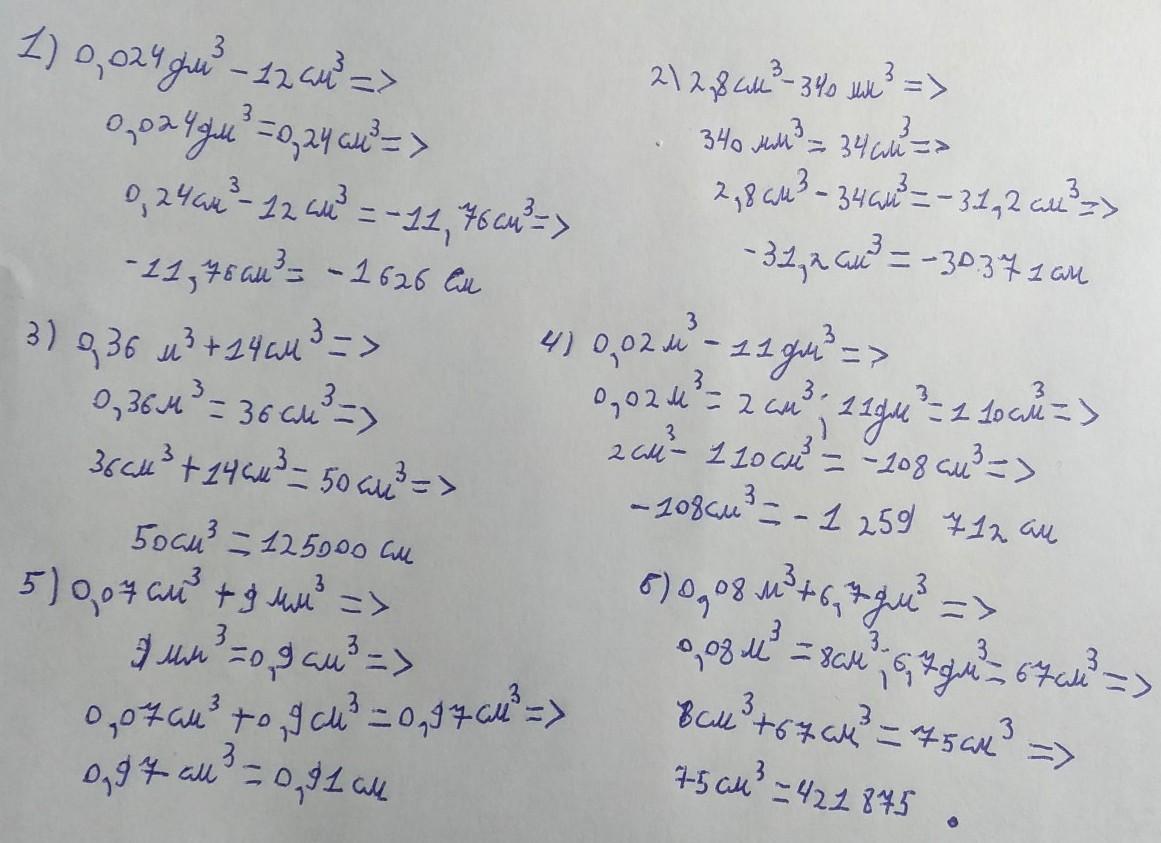 1) 0,024 дм³ - 12 см³ =>
0,024 дм³ = 0,24 см³ =>
0,24 см³ - 12 см³ = -11,76 см³ =>
-11,76 см³ = -1626 см
2) 2,8 см³ - 340 мм³ =>
340 мм³ = 34 см³ =>
2,8 см³ - 34 см³ = -31,2 см³ =>
-31,2 см³ = -30.371 см
3) 0,36 м³ + 14 см³ =>
0,36 м³ = 36 см³ =>
36 см³ + 14 см³ = 50 см³ =>
50 см³ = 125000 см
4) 0,02 м³ - 11 дм³ =>
0,02 м³ = 2 см³; 11 дм³ = 110 см³ =>
2 см³ - 110 см³ = -108 см³ =>
-108 см³ = -1 259 712 см
5) 0,07 см³ + 9 мм³ =>
9 мм³ = 0,9 см³ =>
0,07 см³ + 0,9 см³ = 0,97 см³ =>
0,97 см³ = 0,91 см
6) 0,08 м³ + 6,7 дм³ =>
0,08 м³ = 8 см³; 6,7 дм³ = 67 см³ =>
8 см³ + 67 см³ = 75 см³ =>
75 см³ = 421875 .